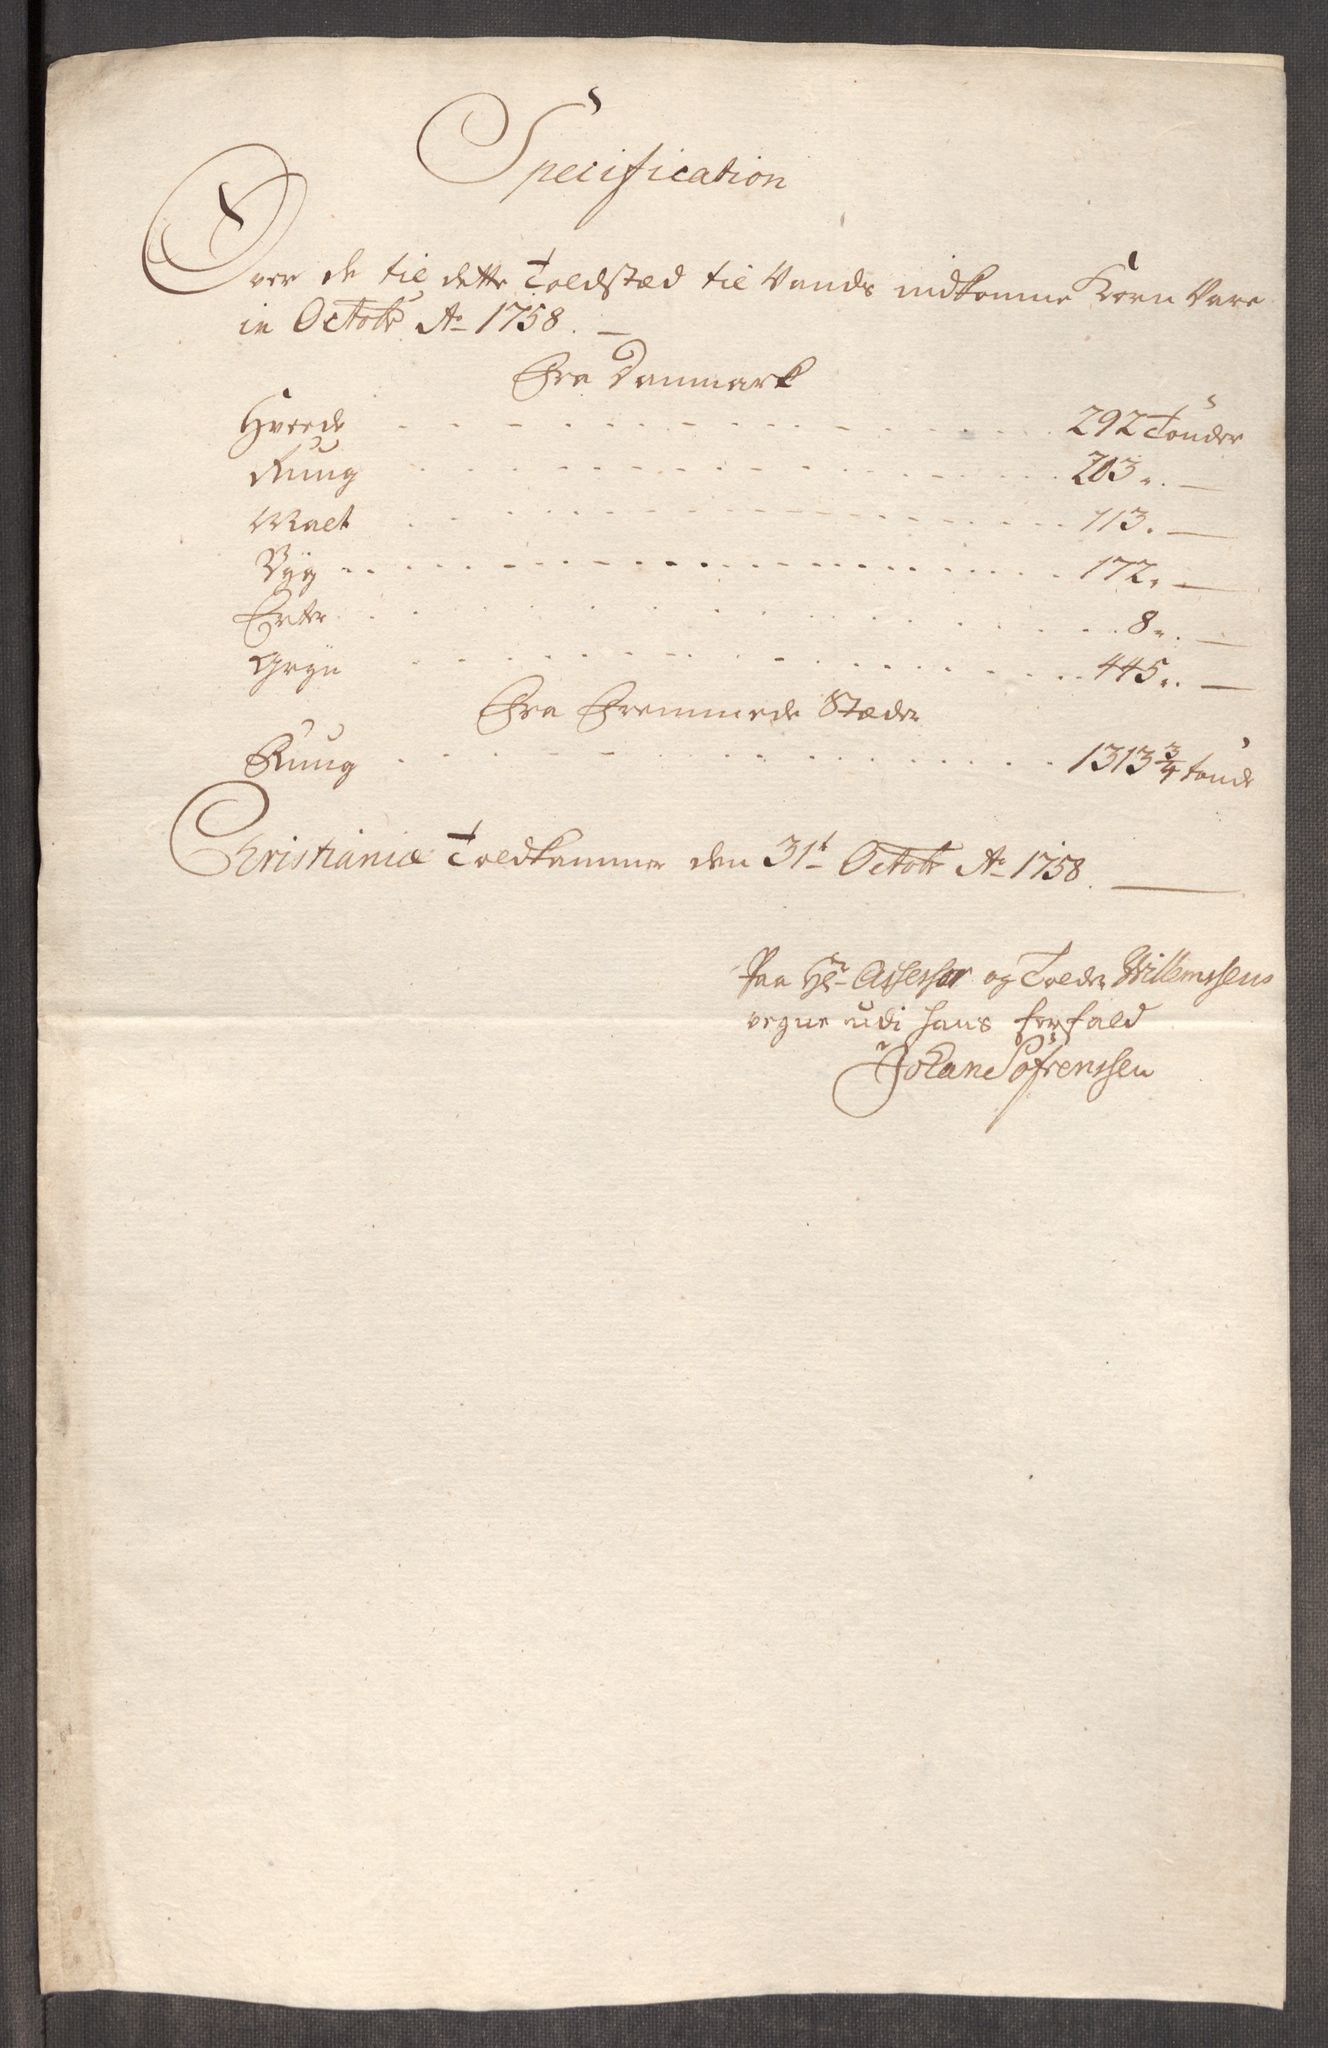 Specification
Over de til dette Toldstæd til Vands indkomne Korn Vare
in Octobr Ao 1758. —
Fra Danmark
Hvede 292 Tønder
Rúúg 203 „ —
Malt 113 „ —
Byg 172 „ —
Erter 8 „ —
Gryn 445 „ —
Fra Fremmede Stæder
Rúúg 1313 3/4 tønde
Christianiæ Toldkammer den 31t Octobr Ao 1758. —
Paa Hr Assessor og Tolder Willemssens
vegne udi hans forfald
Johan Søfrenssen